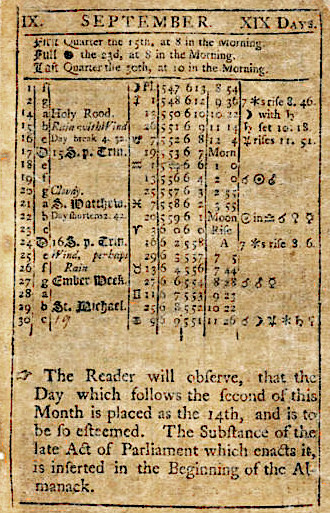 IX. SEPTEMBER. XIX Days.
First Quarter the 15th, at 8 in the Morning.
Full ● the 23d, at 8 in the Morning.
Last Quarter the 30th, at 10 in the Morning.
1 f ☽ Pl 5 47 6 13 8 54
2 g 1 5 48 6 12 9 36 7 *s rise 8. 46.
14 a Holy Rood. 13 5 50 6 10 10 22 ☽ with ♄
15 b Rain with Wind 26 5 51 6 9 11 14 ♄ set 10. 18.
16 c Day break 4. 7 5 52 6 8 12 4 rises 11. 51.
17 15 S. p. Trin. 19 5 53 6 7 Morn
18 6 6 1 0
19 f 13 5 55 6 4 2 0 ☌ ☉ ♂
20 g Cloudy. 25 5 57 6 3 2 55
21 a S. Matthew. 7 5 58 6 2 3 55
22 b Day shortens 2. 42. 20 5 59 6 1 Moon ☉ in ♎
23 c 3 6 0 6 0 Rise
24 16 S. p. Trin. 16 6 2 5 58 A 7 *s rise 8 6.
25 e Wind, perhaps 29 6 3 5 57 7 5
26 f Rain 13 6 4 5 56 7 44
27 g Ember Week. 27 6 6 5 54 8 28
28 a 11 6 7 5 53 9 23
29 b St. Michael. 25 6 8 5 52 10 22
30 c 9 6 9 5 51 11 26
☞ The Reader will observe, that the
Day which follows the second of this
Month is placed as the 14th, and is to
be so esteemed. The Substance of the
late Act of Parliament which enacts it,
is inserted in the Beginning of the Al-
manack.